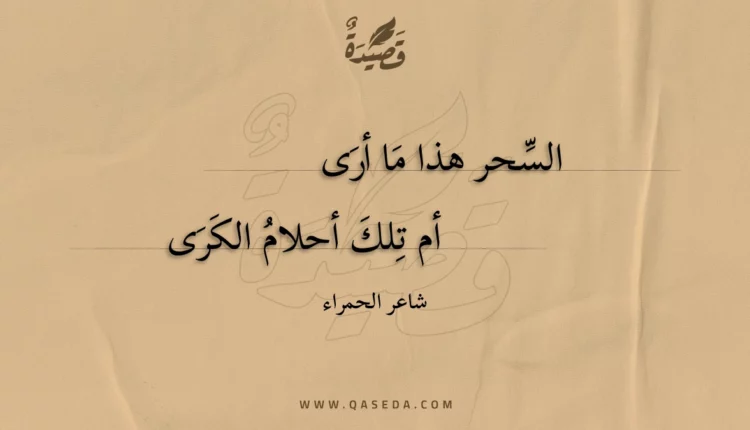 قَصِيدَةٌ
السِّحر هذا مَا أرَى
أم تِلكَ أحلامُ الكَرَى
شاعر الحمراء
WWW.QASEDA.COM